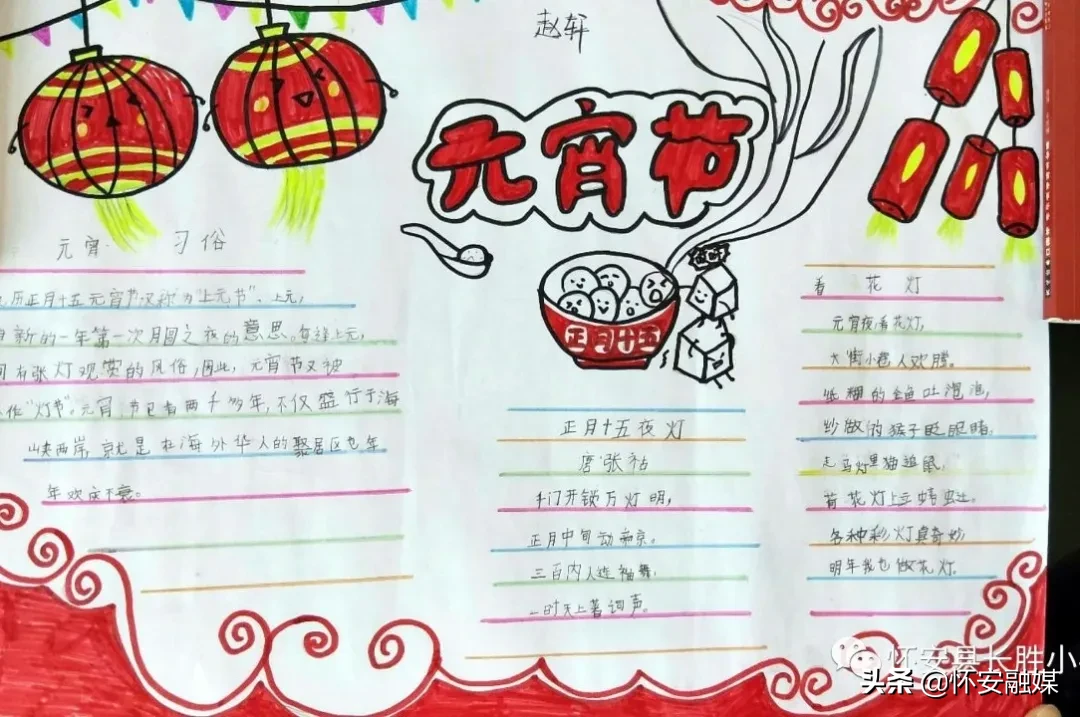 赵轩
元宵节
正月十五
元宵 习俗
历正月十五元宵节又称为"上元节"，上元，
新的一年第一次月圆之夜的意思。每逢上元，
有张灯观赏的风俗，因此，元宵节又被
作"灯节"。元宵节已有两千多年，不仅盛行于海
峡两岸，就是在海外华人的聚居区也年
年欢庆不衰。
正月十五夜灯
唐 张祜
千门开锁万灯明，
正月中旬动帝京。
三百内人连袖舞，
一时天上著词声。
看 花 灯
元宵夜，看花灯，
大街小巷人欢腾。
纸糊的金鱼吐泡泡，
纱做的猴子眨眼睛，
走马灯里猫追鼠，
荷花灯上
各种彩灯真奇妙
明年我也做花灯。
怀安县长胜小
头条 @怀安融媒